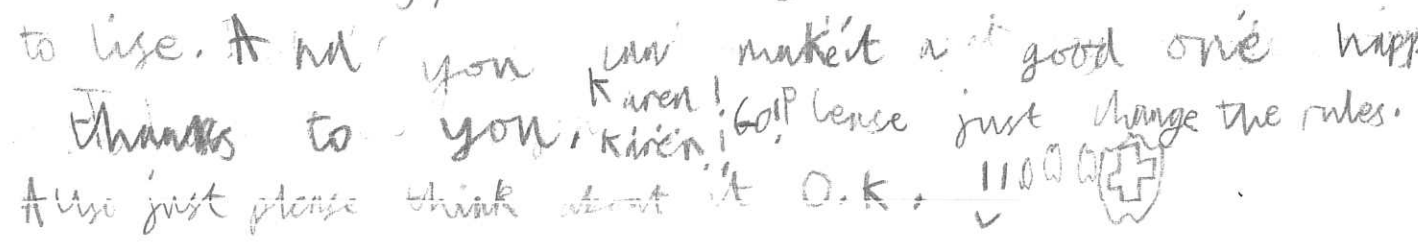 to live. And you can make it a good one happ
Thanks to you. Karen! Karen! Go! Please just change the rules.
Also just please think about it O.K. !!